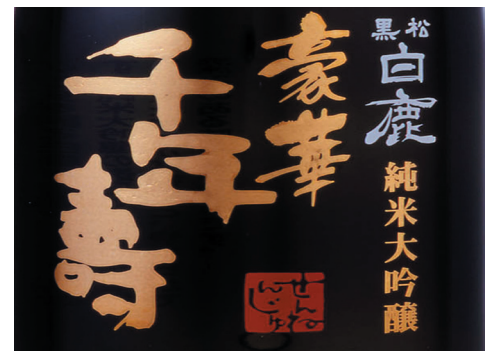 黒松
白鹿
純米大吟醸
豪華
千年
壽
せんねん
じゅ